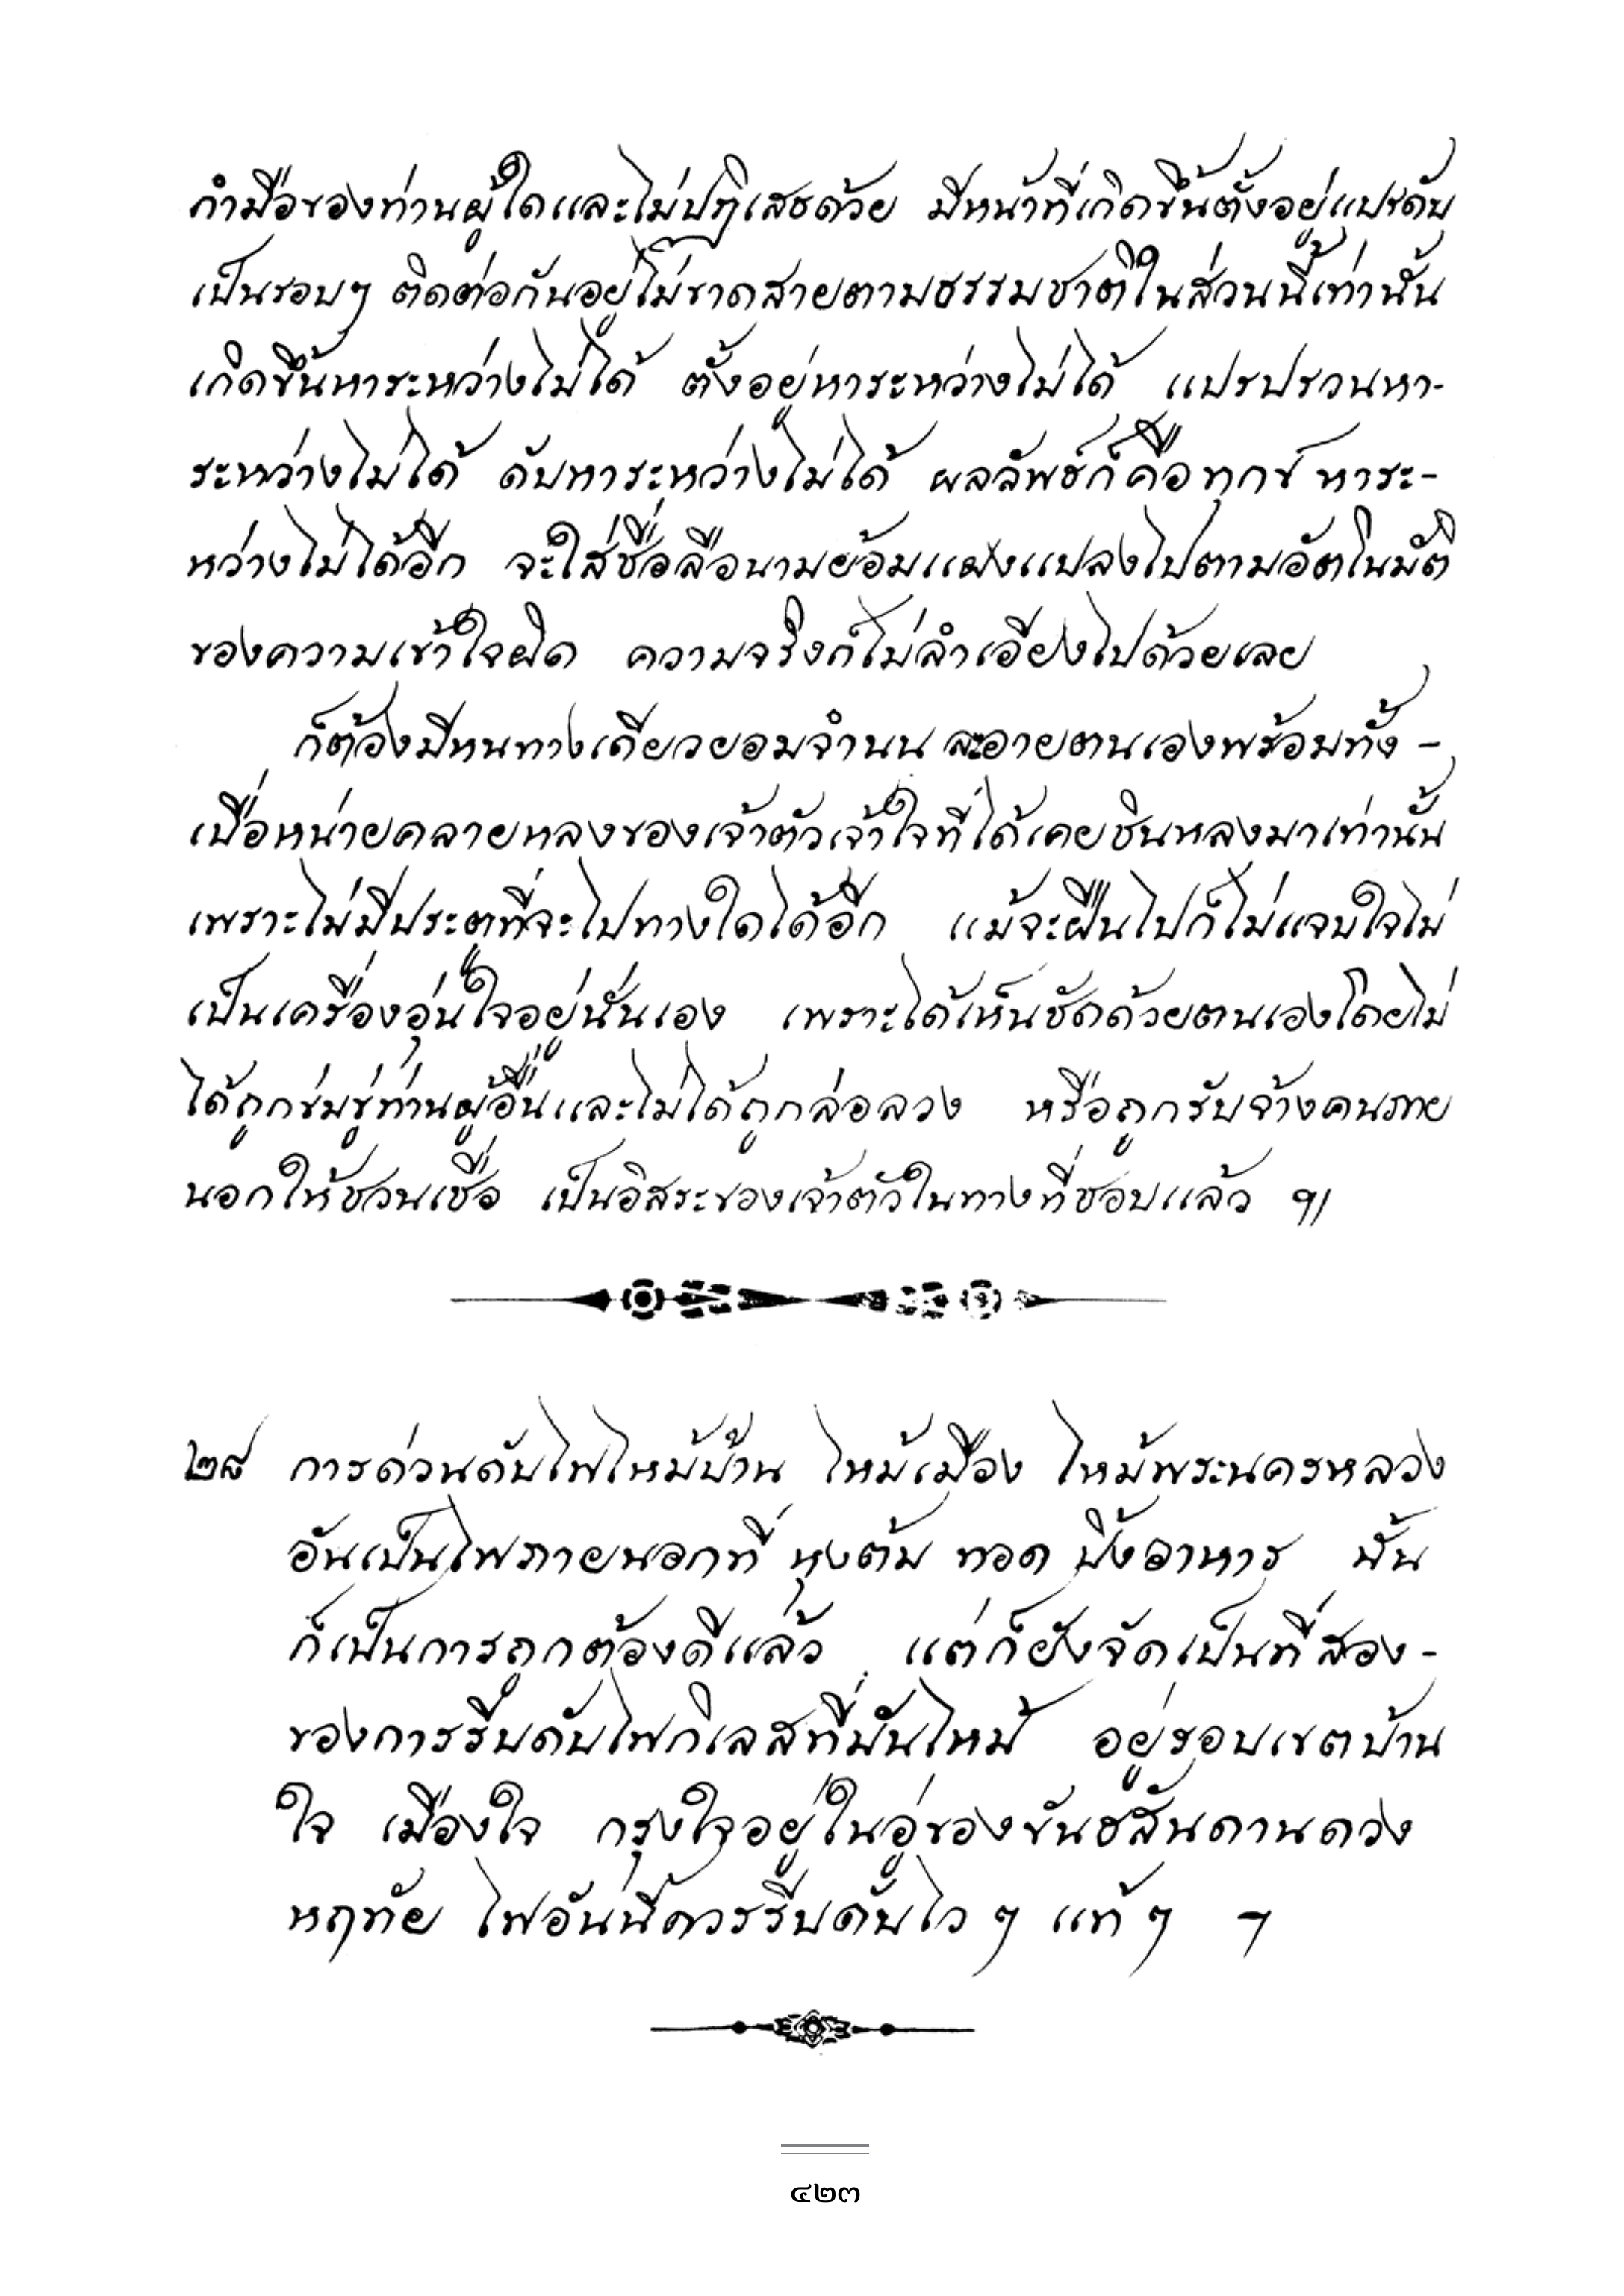 กำมือของท่านผู้ใดและไม่ปฏิเสธด้วย มีหน้าที่เกิดขึ้นตั้งอยู่แปรดับ
เป็นรอบๆ ติดต่อกันอยู่ไม่ขาดสายตามธรรมชาติในส่วนนี้เท่านั้น
เกิดขึ้นหาระหว่างไม่ได้ ตั้งอยู่หาระหว่างไม่ได้ แปรปรวนหา-
ระหว่างไม่ได้ ดับหาระหว่างไม่ได้ ผลลัพธ์ก็คือทุกข์ หาระ-
หว่างไม่ได้อีก จะใส่ชื่อลือนามย้อมแฝงแปลงไปตามอัตโนมัติ
ของความเข้าใจผิด ความจริงก็ไม่ลำเอียงไปด้วยเลย
ก็ต้องมีหนทางเดียวยอมจำนน ละอายตนเองพร้อมทั้ง -
เบื่อหน่ายคลายหลงของเจ้าตัวเจ้าใจที่ได้เคยชินหลงมาเท่านั้น
เพราะไม่มีประตูที่จะไปทางใดได้อีก แม้จะฝืนไปก็ไม่แจบใจไม่
เป็นเครื่องอุ่นใจอยู่นั่นเอง เพราะได้เห็นชัดด้วยตนเองโดยไม่
ได้ถูกข่มขู่ท่านผู้อื่นและไม่ได้ถูกล่อลวง หรือถูกรับจ้างคนภาย
นอกให้ชวนเชื่อ เป็นอิสระของเจ้าตัวในทางที่ชอบแล้ว ฯ
๒๘ การด่วนดับไฟไหม้บ้าน ไหม้เมือง ไหม้พระนครหลวง
อันเป็นไฟภายนอกที่ หุงต้ม ทอด ปิ้งอาหาร นั้น
ก็เป็นการถูกต้องดีแล้ว แต่ก็ยังจัดเป็นที่สอง -
ของการรีบดับไฟกิเลสที่มันไหม้ อยู่รอบเขตบ้าน
ใจ เมืองใจ กรุงใจอยู่ในอู่ของขันธสันดานดวง
หฤทัย ไฟอันนี้ควรรีบดับไว ๆ แท้ ๆ ฯ
๔๒๓